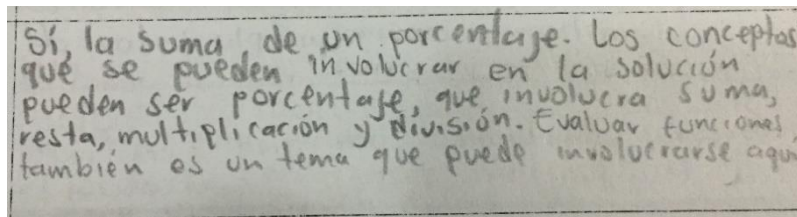 Sí, la suma de un porcentaje. Los conceptos
que se pueden involucrar en la solución
pueden ser porcentaje, que involucra suma,
resta, multiplicación y división. Evaluar funciones
también es un tema que puede involucrarse aquí